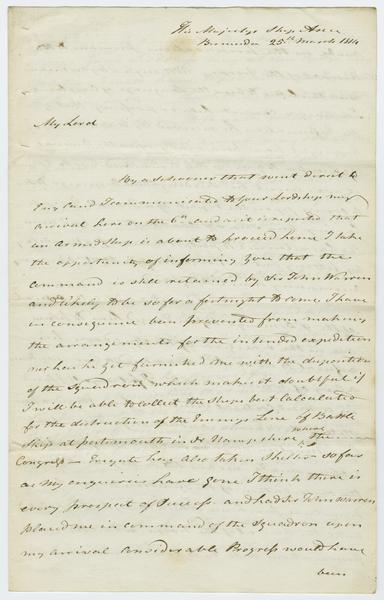 His Majestys Ship Asia
Bermuda 25th March 1814
My Lord
By a Schooner that went direct to
England I communicated to your Lordship my
arrival here on the 6th and as it is reported that
an Armed Ship is about to proceed home I take
the opportunity of informing you that the
command is still retained by Sir John Warren
and likely to be so for a fortnight to come, I have
in consequence been prevented from making
the arrangements for the intended expedition
nor has he yet furnished me with the disposition
of the Squadron which makes it doubtful if
I will be able to collect the Ships best Calculated
for the distruction of the Enemys Line of Battle
Ship at portsmouth in N Hampshire where The
Congress - Frigate has also taken Shelter - so far
as my enquiries have gone I think there is
every prospect of Success and had Sir John Warren
placed me in command of the Squadron upon
my arrival Considerable Progress would have
been